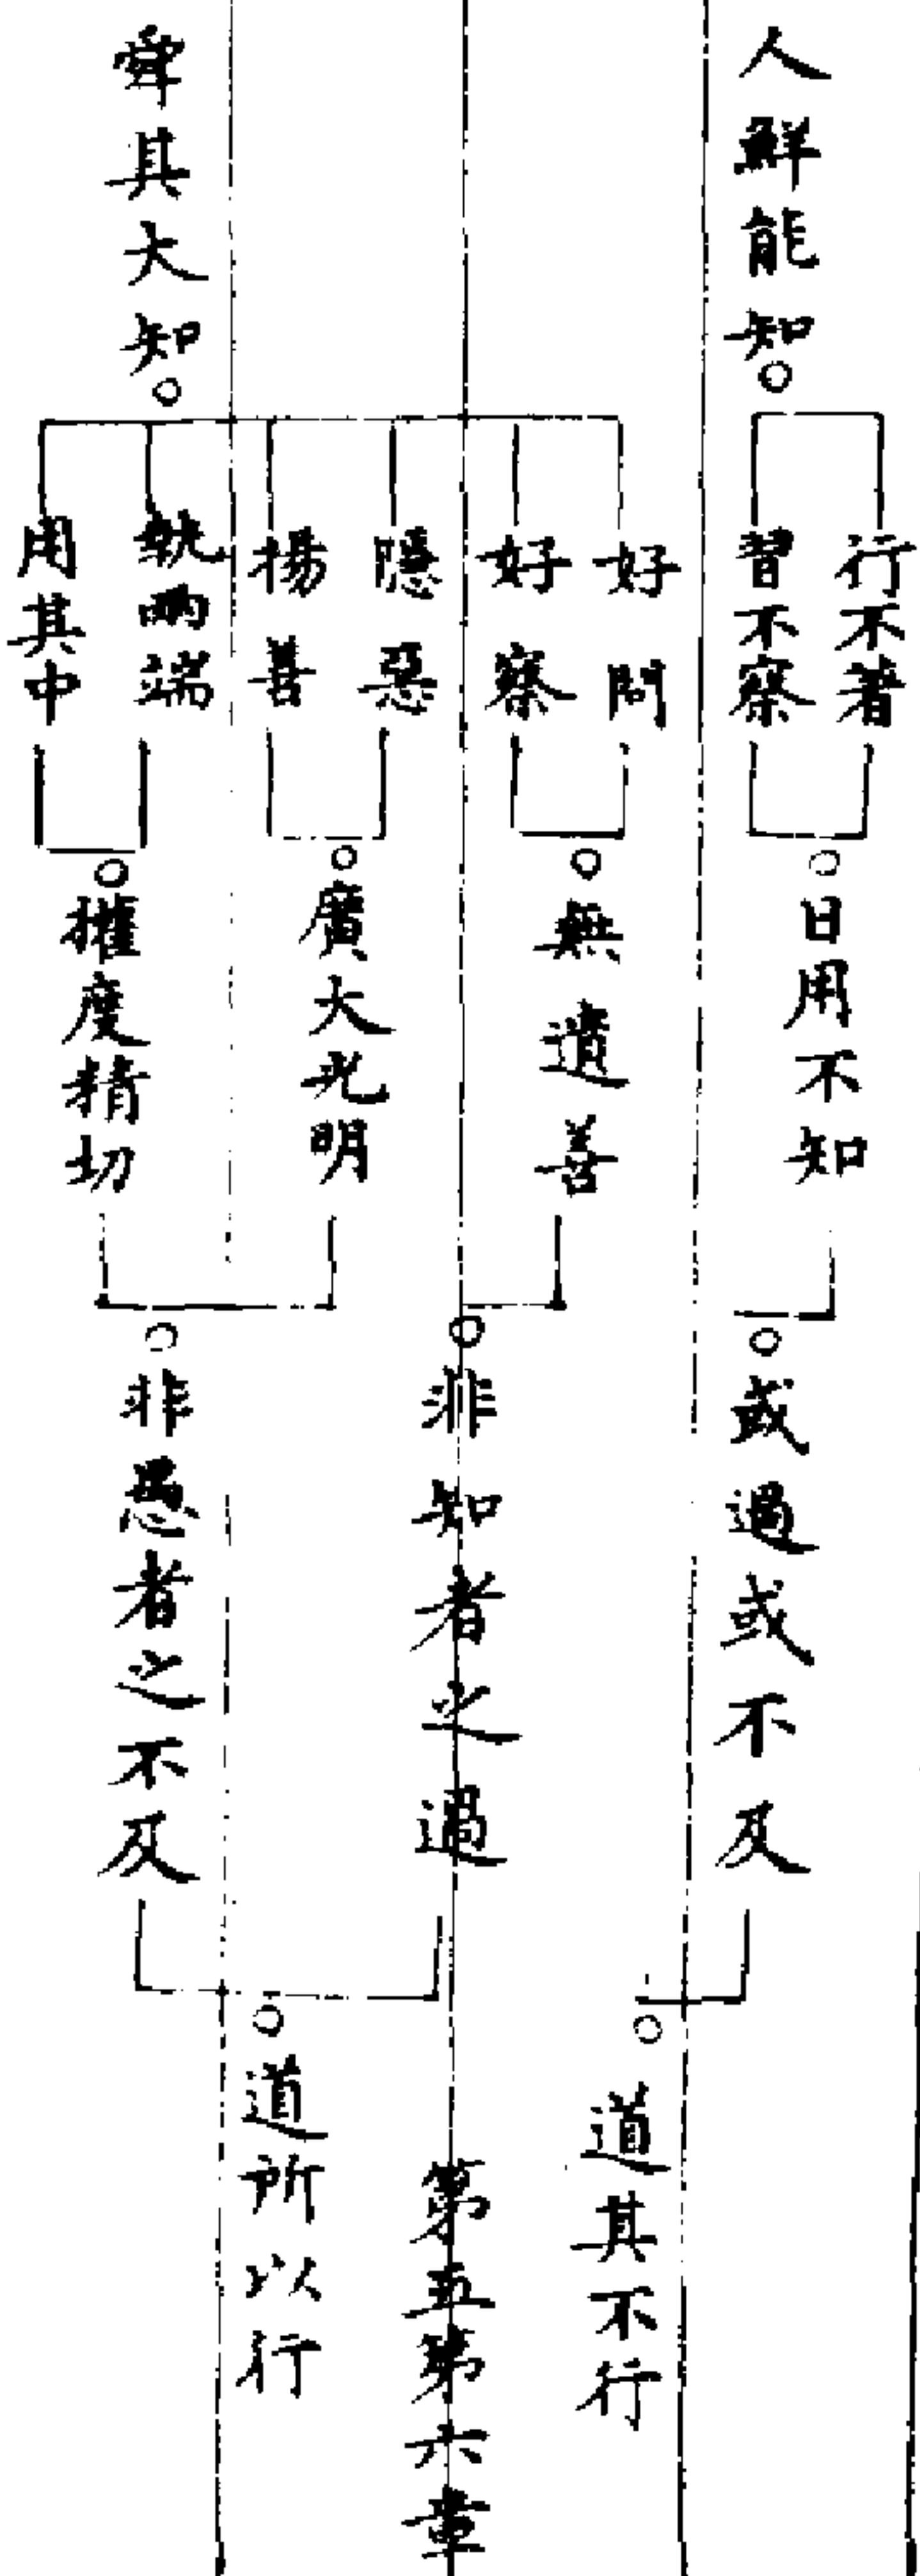 人鮮能知○
行不著
習不察
○日用不知
○或過或不及
○道其不行
舜其大知○
好問
好察
隱惡
揚善
執兩端
用其中
○無遺善
○廣大光明
○權度精切
○非知者之過
○非愚者之不及
○道所以行
第五第六章